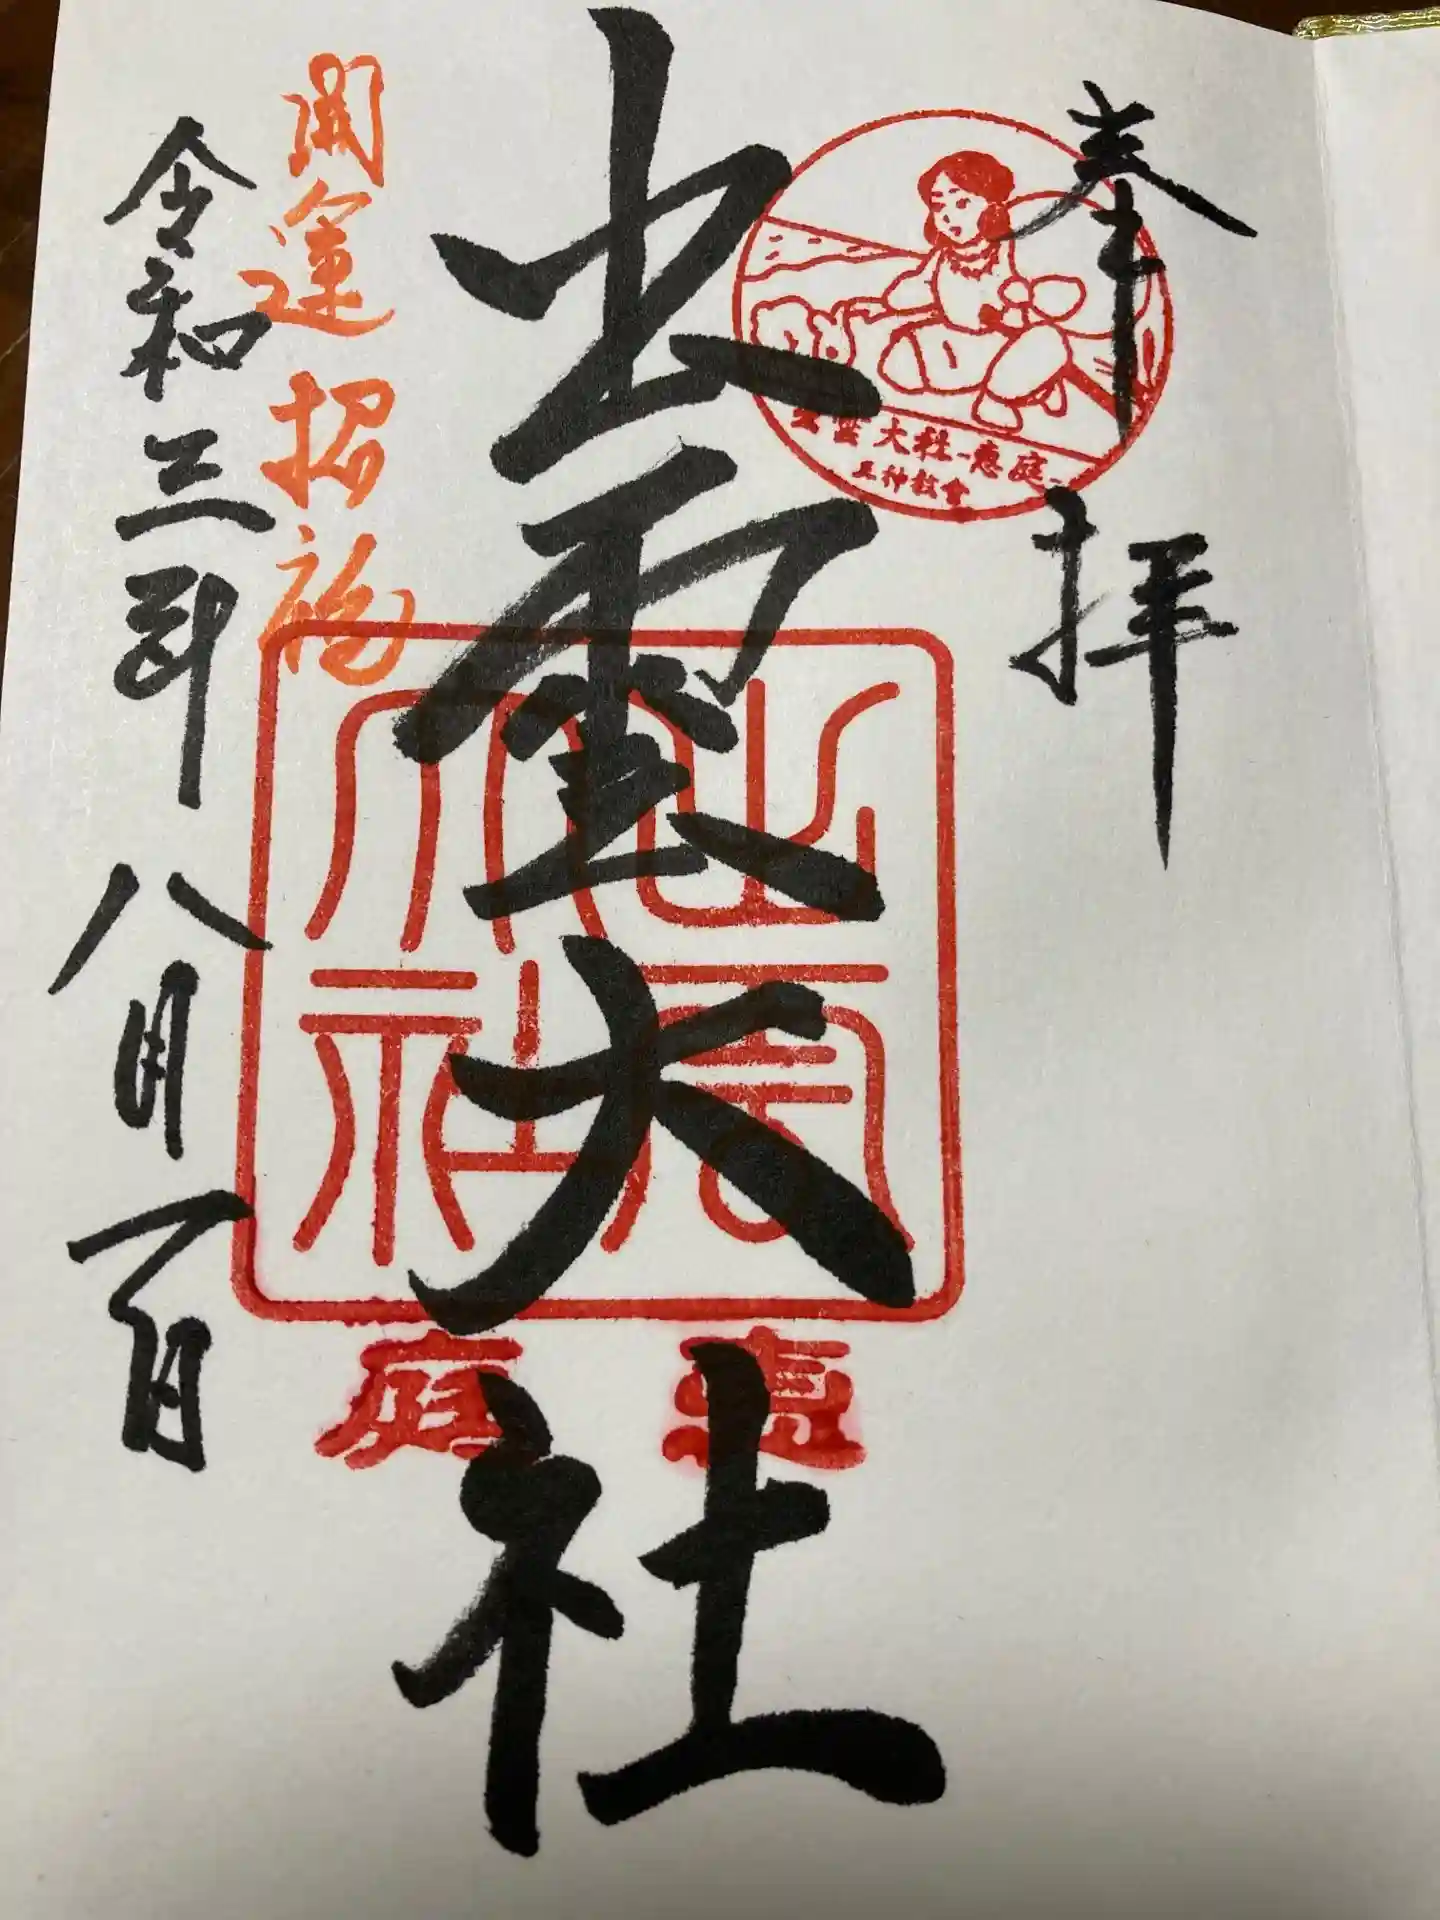 奉拝
出雲大社-恵庭-
三神教會
出雲大社
出雲
大社
恵庭
開運招福
令和三年八月一日